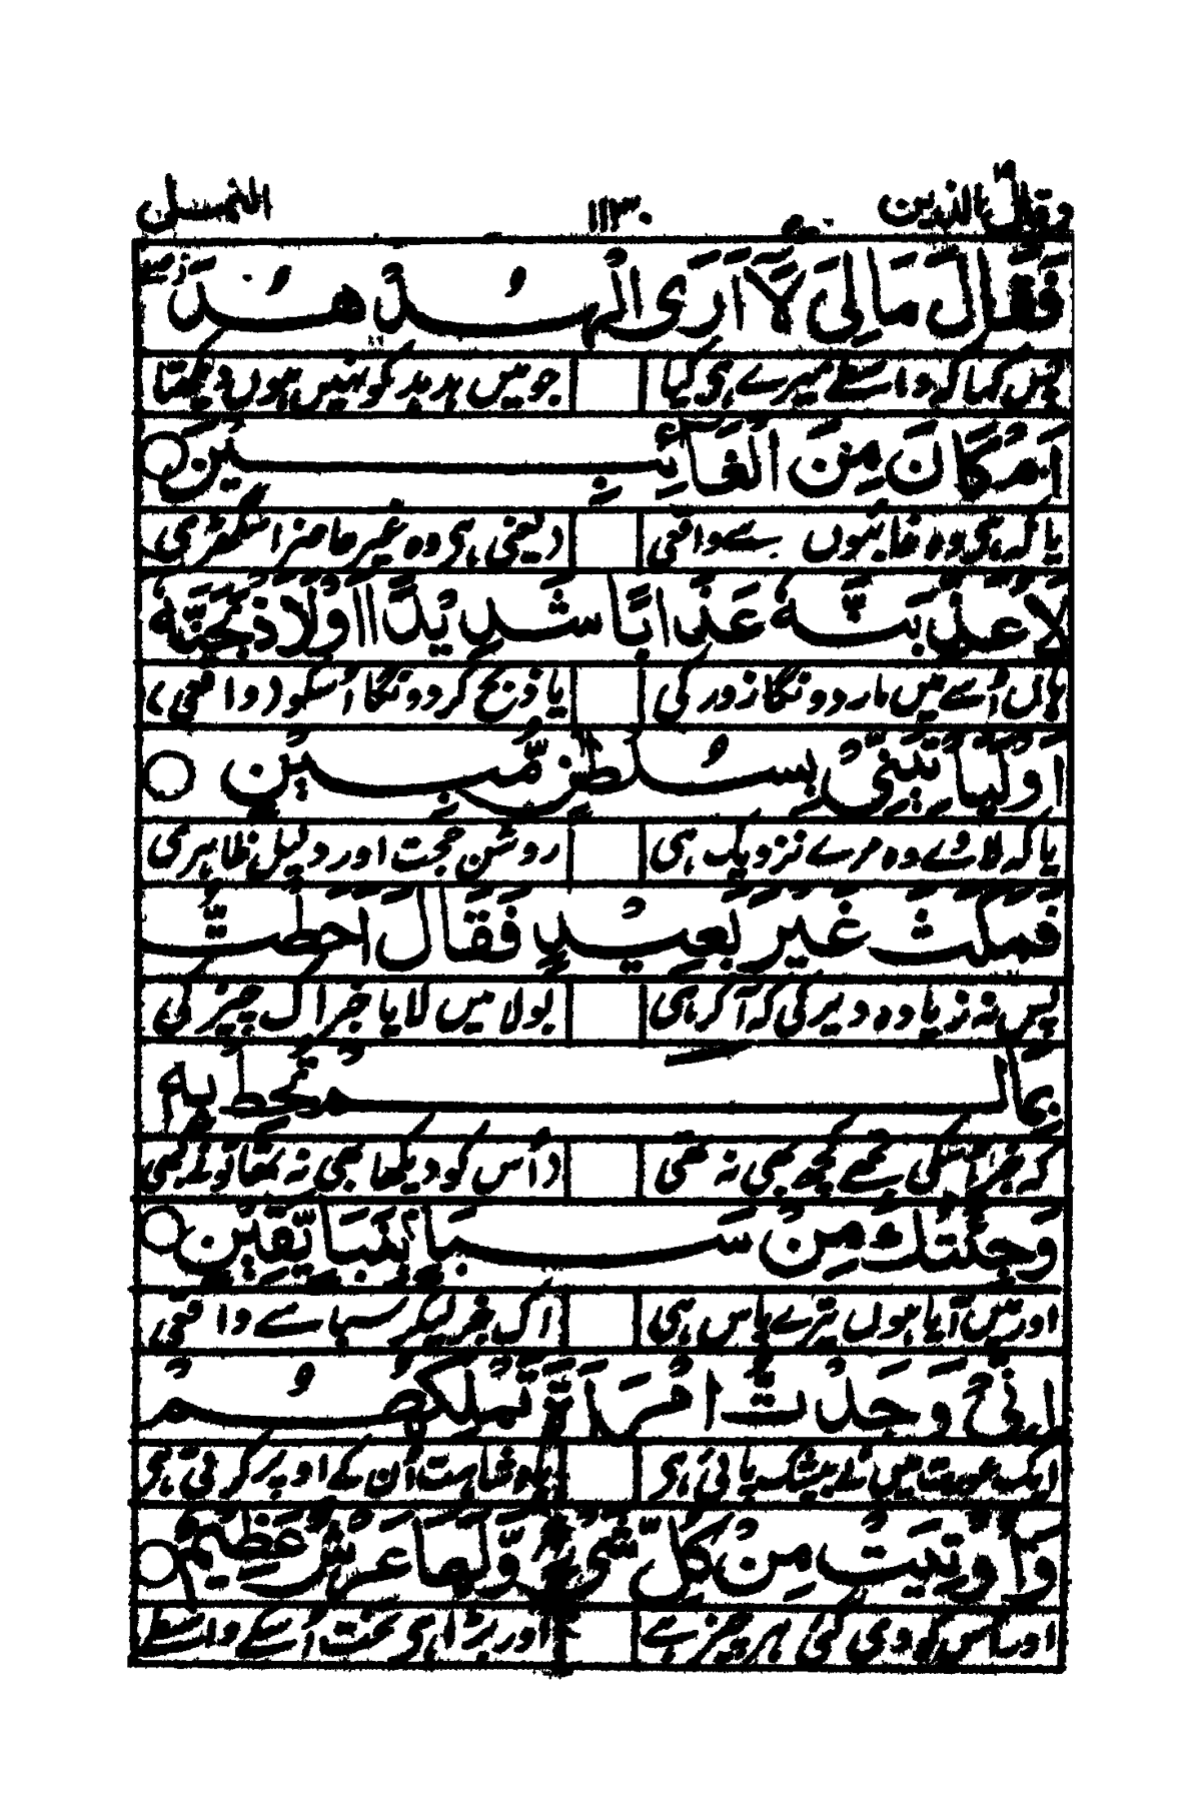 وقال الذین ۱۹ ۱۱۳۰ النمل
فَقَالَ مَا لِیَ لَآ اَرَی الْهُدْهُدَ ز
پس کہا کہ واسطے میرے ہی کیا جو میں ہدہد کو نہیں ہوں دیکھتا
اَمْ كَانَ مِنَ الْغَآئِبِیْنَ ○
یا کہ ہی وہ غائبوں سے واقعی (یعنی ہی وہ غیر حاضر اس گھڑی
لَاُعَذِّبَنَّهٗ عَذَابًا شَدِیْدًا اَوْ لَاَذْبَحَنَّهٗ
ہاں اُسے میں مار دونگا زور کی یا ذبح کر دونگا اُسکو (واقعی)
اَوْ لَیَاْتِیَنِّیْ بِسُلْطٰنٍ مُّبِیْنٍ ○
یا کہ لاوے وہ مرے نزدیک ہی روشن حجت اور دلیل ظاہری
فَمَكَثَ غَیْرَ بَعِیْدٍ فَقَالَ اَحَطْتُّ
پس نہ زیادہ دیر کی کہ آکر ہی بولا میں لایا خبر اک چیز کی
بِمَا لَمْ تُحِطْ بِهٖ
کہ خبر اسکی تجھے کچھ بھی نہ تھی (اُس کو دیکھا بھی نہ تھا تو نے کبھی
وَجِئْتُكَ مِنْ سَبَاٍ بِنَبَاٍ یَّقِیْنٍ ○
اور میں آیا ہوں تیرے پاس ہی اک خبر لیکر سبا سے واقعی
اِنِّیْ وَجَدْتُّ امْرَاَةً تَمْلِكُهُمْ
ایک عورت میں نے بیشک پائی ہی بادشاہت اُن کے اوپر کرتی ہی
وَاُوْتِیَتْ مِنْ كُلِّ شَیْءٍ وَّلَهَا عَرْشٌ عَظِیْمٌ ○
اور اُس کو دی گئی ہر چیز ہے اور بڑا ہی تخت اُسکے واسطے